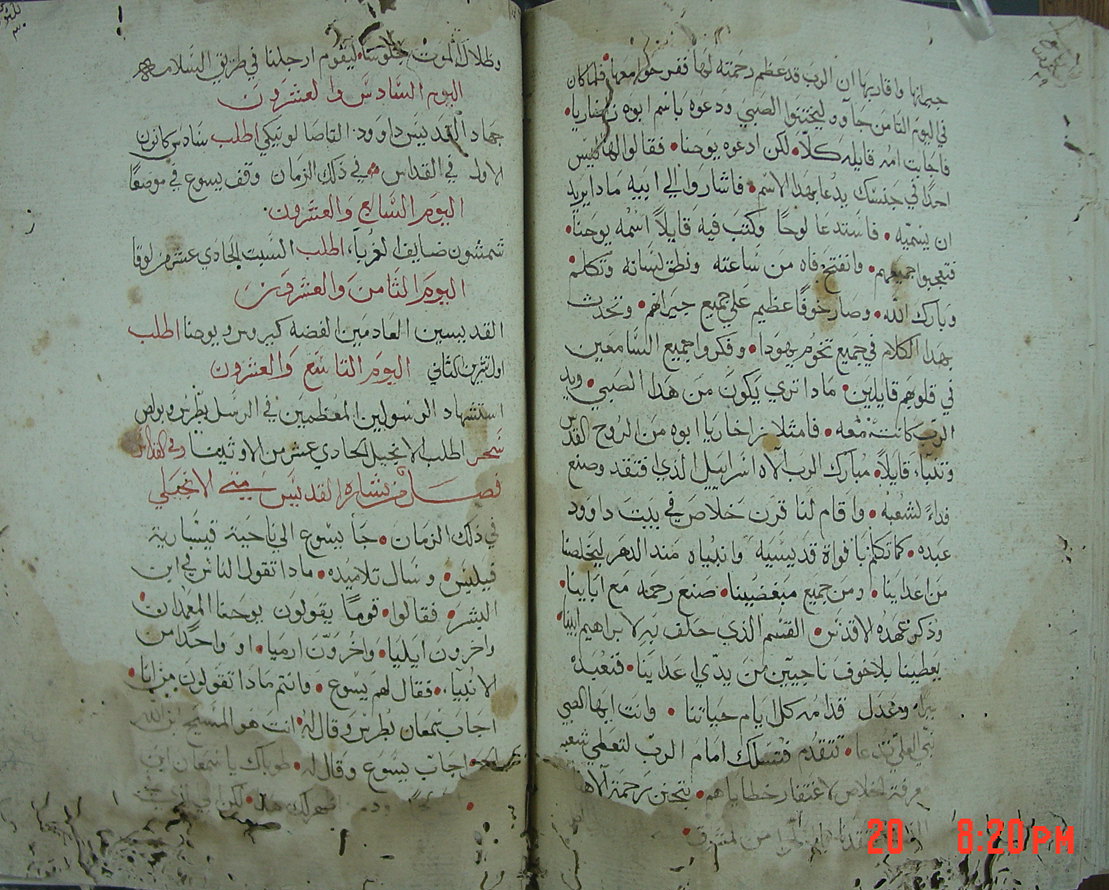 جيرانها واقاربها ان الرب قد عظم رحمته لها ففرحوا معها فلما كان
في اليوم الثامن جآوو ليختنوا الصبي ودعوه باسم ابوه زخاريا
فاجابت امه قايله كلا لكن ادعوه يوحنا فقالوا لها ليس
احدًا في جنسك يدعا بهذا الاسم فاشاروا الي ابيه ماذا يريد
ان يسميه فاستدعا لوحًا وكتب فيه قايلاً اسمه يوحنا
فتعجبوا جميعهم وانفتح فاه من ساعته ونطق لسانه وتكلم
وبارك الله وصار خوفًا عظيم علي جميع جيرانهم وتحدث
بهذا الكلام في جميع تخوم يهودا وفكروا جميع السامعين
في قلوبهم قايلين ماذا تري يكون من هذا الصبي ويد
الرب كانت معه فامتلا زاخاريا ابوه من الروح القدس
وتنبا قايلاً مبارك الرب الاه اسراييل الذي افتقد وصنع
فداءً لشعبه واقام لنا قرن خلاص في بيت داوود
عبده كما تكلم بافواة قديسيه وانبياه منذ الدهر ليخلصنا
من اعداينا ومن جميع مبغضينا صنع رحمه مع اباينا
وذكر عهده لاقدس القسم الذي حلف به لابراهيم ابينا
يعطينا بلا خوف ناجيين من يدي اعداينا فنعبده
ببر وعدل قدامه كل ايام حياتنا وانت ايها الصبي
نبي العلي تدعا تتقدم فتسلك امام الرب لتعطي شعبه
معرفة الخلاص لاغتفار خطاياهم بتحنن رحمة الاهنا
من المشرق
وظلال الموت جلوسًا ليقوم ارجلنا في طريق السلامه
اليوم السادس والعشرون
جهاد القديس داوود التاصالونيكي اطلب سادس كانون
الاول في القداس في ذلك الزمان وقف يسوع في موضعًا
اليوم السابع والعشرون
شمشون ضايف الغربآء اطلب السبت الحادي عشر من لوقا
اليوم الثامن والعشرون
القديسين العادمين الفضه كيروس ويوحنا اطلب
اول تشرين الثاني اليوم التاسع والعشرون
استشهاد الرسولين المعظمين في الرسل بطرس وبولص
سحر اطلب الانجيل الحادي عشر من الاوثينا وفي القداس
فصل من بشارة القديس متي الانجيلي
في ذلك الزمان جا يسوع الي ناحية قيسارية
فيلبس وسال تلاميذه ماذا تقول الناس في ابن
البشر فقالوا قومًا يقولون يوحنا المعمدان
واخرون ايليا واخرون ارميا او واحدًا من
الانبيا فقال لهم يسوع وانتم ماذا تقولون من انا
اجاب سمعان بطرس وقال له انت هو المسيح ابن الله
الحي اجاب يسوع وقال له طوباك يا سمعان ابن
20 8:20PM